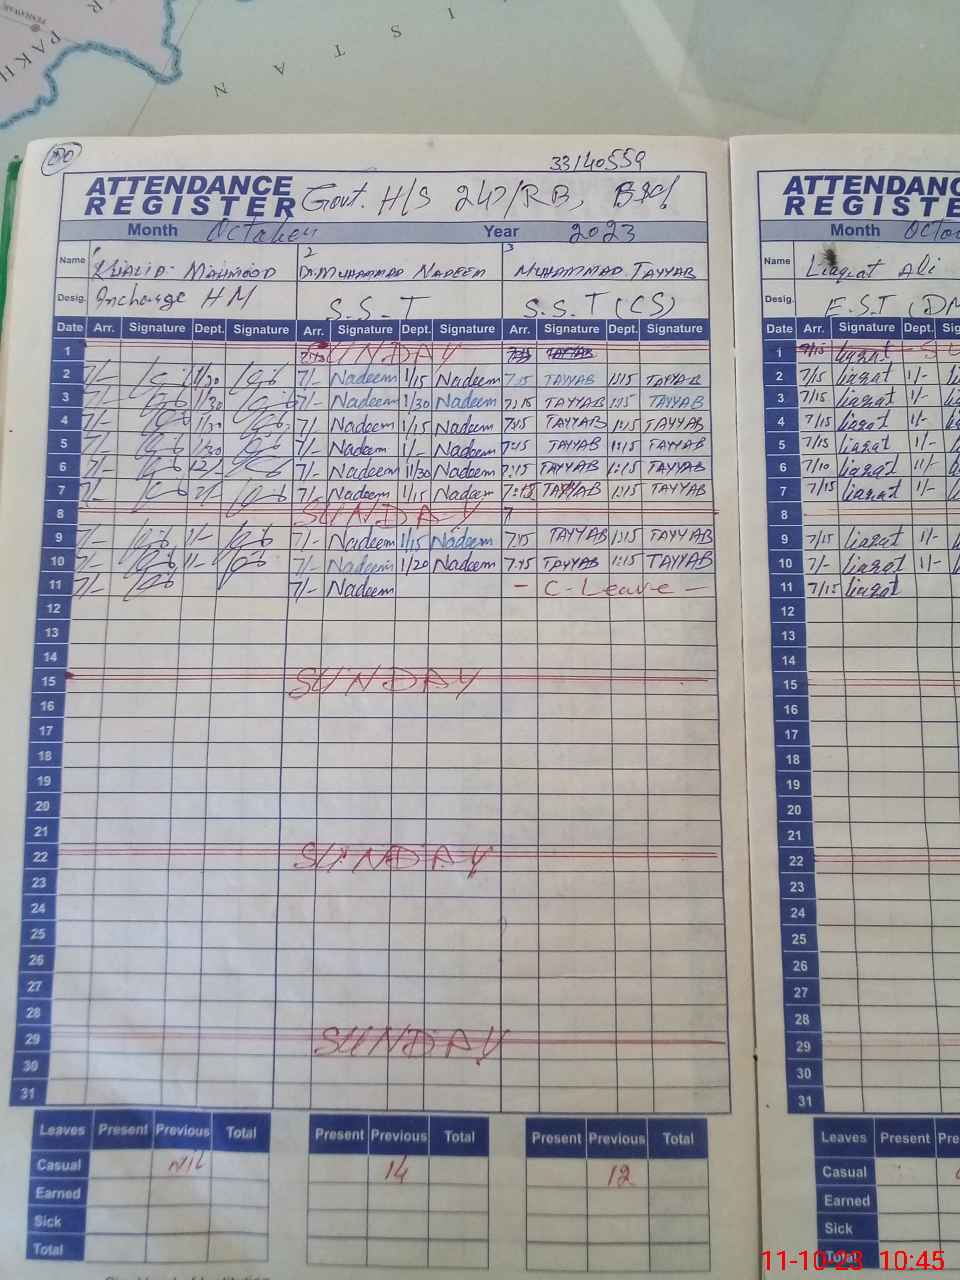 PESHAWAR
PAKH
I S T A N
270
33140559
ATTENDANCE REGISTER Govt. H/S 242/RB,
Month October Year 2023
Name Khalid Mahmood 2 Dr. Muhammad Nadeem 3 Muhammad Tayyab
Desig. Incharge HM S.S.T S.S.T (CS)
Date Arr. Signature Dept. Signature Arr. Signature Dept. Signature Arr. Signature Dept. Signature
1 SUNDAY TAYYAB
2 7/- 1/30 7/- Nadeem 1/15 Nadeem 7:15 TAYYAB 1:15 TAYYAB
3 7/- 1/30 7/- Nadeem 1/30 Nadeem 7:15 TAYYAB 1:15 TAYYAB
4 7/- 1/30 7/- Nadeem 1/15 Nadeem 7:15 TAYYAB 1:15 TAYYAB
5 7/- 1/30 7/- Nadeem 1/- Nadeem 7:15 TAYYAB 1:15 TAYYAB
6 7/- 12/- 7/- Nadeem 1/30 Nadeem 7:15 TAYYAB 1:15 TAYYAB
7 7/- 7/- Nadeem 1/15 Nadeem 7:15 TAYYAB 1:15 TAYYAB
8 SUNDAY 7
9 7/- 1/- 7/- Nadeem 1/15 Nadeem 7:15 TAYYAB 1:15 TAYYAB
10 7/- 1/- 7/- Nadeem 1/20 Nadeem 7:15 TAYYAB 1:15 TAYYAB
11 7/- 7/- Nadeem - C-Leave -
12
13
14
15 SUNDAY
16
17
18
19
20
21
22 SUNDAY
23
24
25
26
27
28
29 SUNDAY
30
31
Leaves Present Previous Total Present Previous Total Present Previous Total
Casual Nil 14 12
Earned
Sick
Total
ATTENDANC
REGISTE
Month Octo
Name Liaqat Ali
Desig. E.S.T (DM
Date Arr. Signature Dept. Si
1 7/15 liaqat S
2 7/15 liaqat 1/-
3 7/15 liaqat 1/-
4 7/15 liaqat 1/-
5 7/15 liaqat 1/-
6 7/10 liaqat 11/-
7 7/15 liaqat 1/-
8
9 7/15 liaqat 1/-
10 7/- liaqat 1/-
11 7/15 liaqat
12
13
14
15
16
17
18
19
20
21
22
23
24
25
26
27
28
29
30
31
Leaves Present Pre
Casual
Earned
Sick
Total
11-10-23 10:45